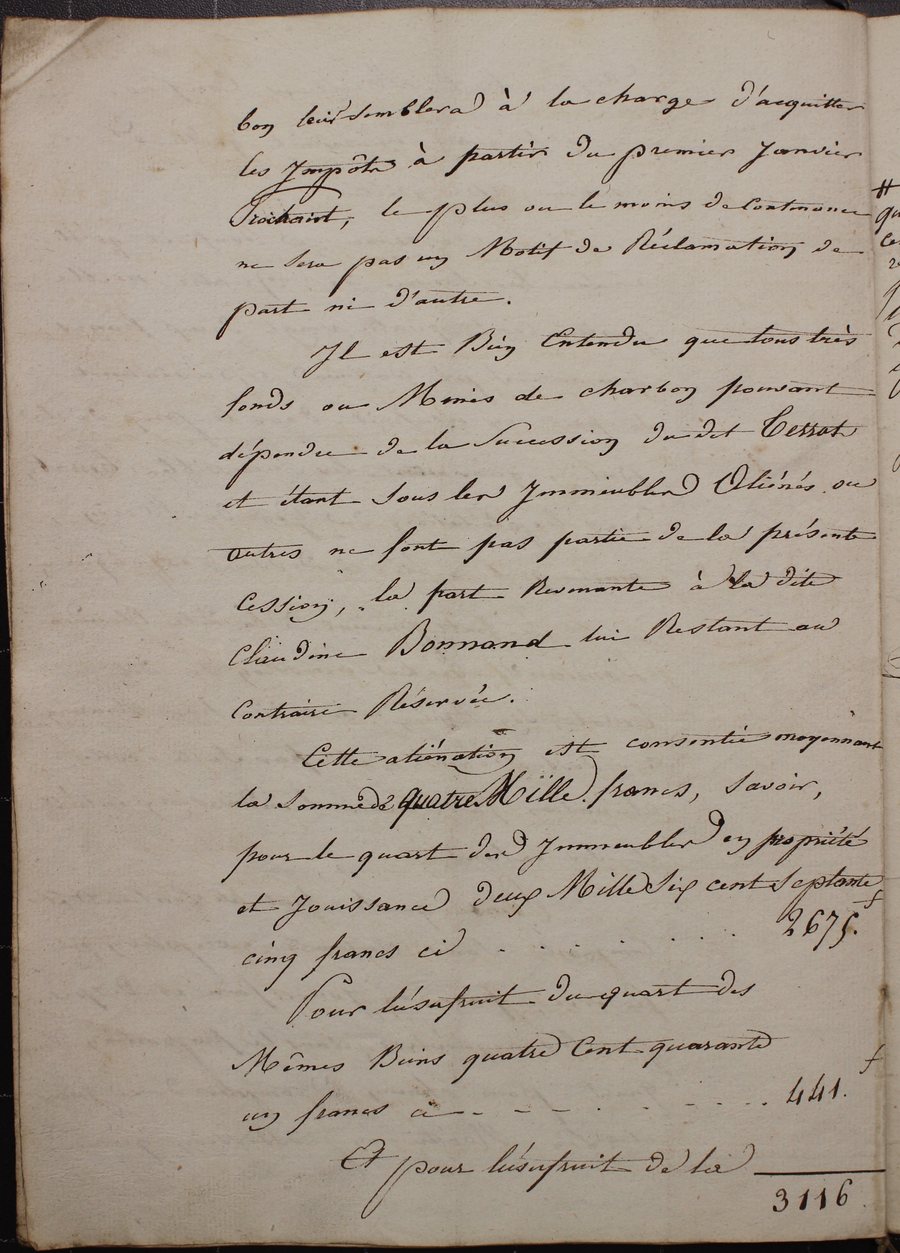 bon leur semblera à la charge d'acquitter
les Impôts à partir du premier Janvier
Prochain, le plus ou le moins de Contenance
ne sera pas un Motif de Réclamation de
part ni d'autre.
Il est Bien Entendu que tous très
fonds ou Mines de charbon pouvant
dépendre de la Succession du dit Terrat
et étant sous les Immeubles Aliénés ou
autres ne font pas partie de la présente
Cession, la part Revenante à la dite
Claudine Bonnand lui Restant au
Contraire Réservée.
Cette aliénation est consentie moyennant
la somme de quatre Mille francs, savoir,
pour le quart des Immeubles en propriété
et Jouissance deux Mille six cent septante
cinq francs ci . . . . . . 2675.f
Pour lusufruit du quart des
Mêmes Biens quatre Cent quarante
un francs ci - - - . . - - - . 441.f
Et pour lusufruit de la
3116